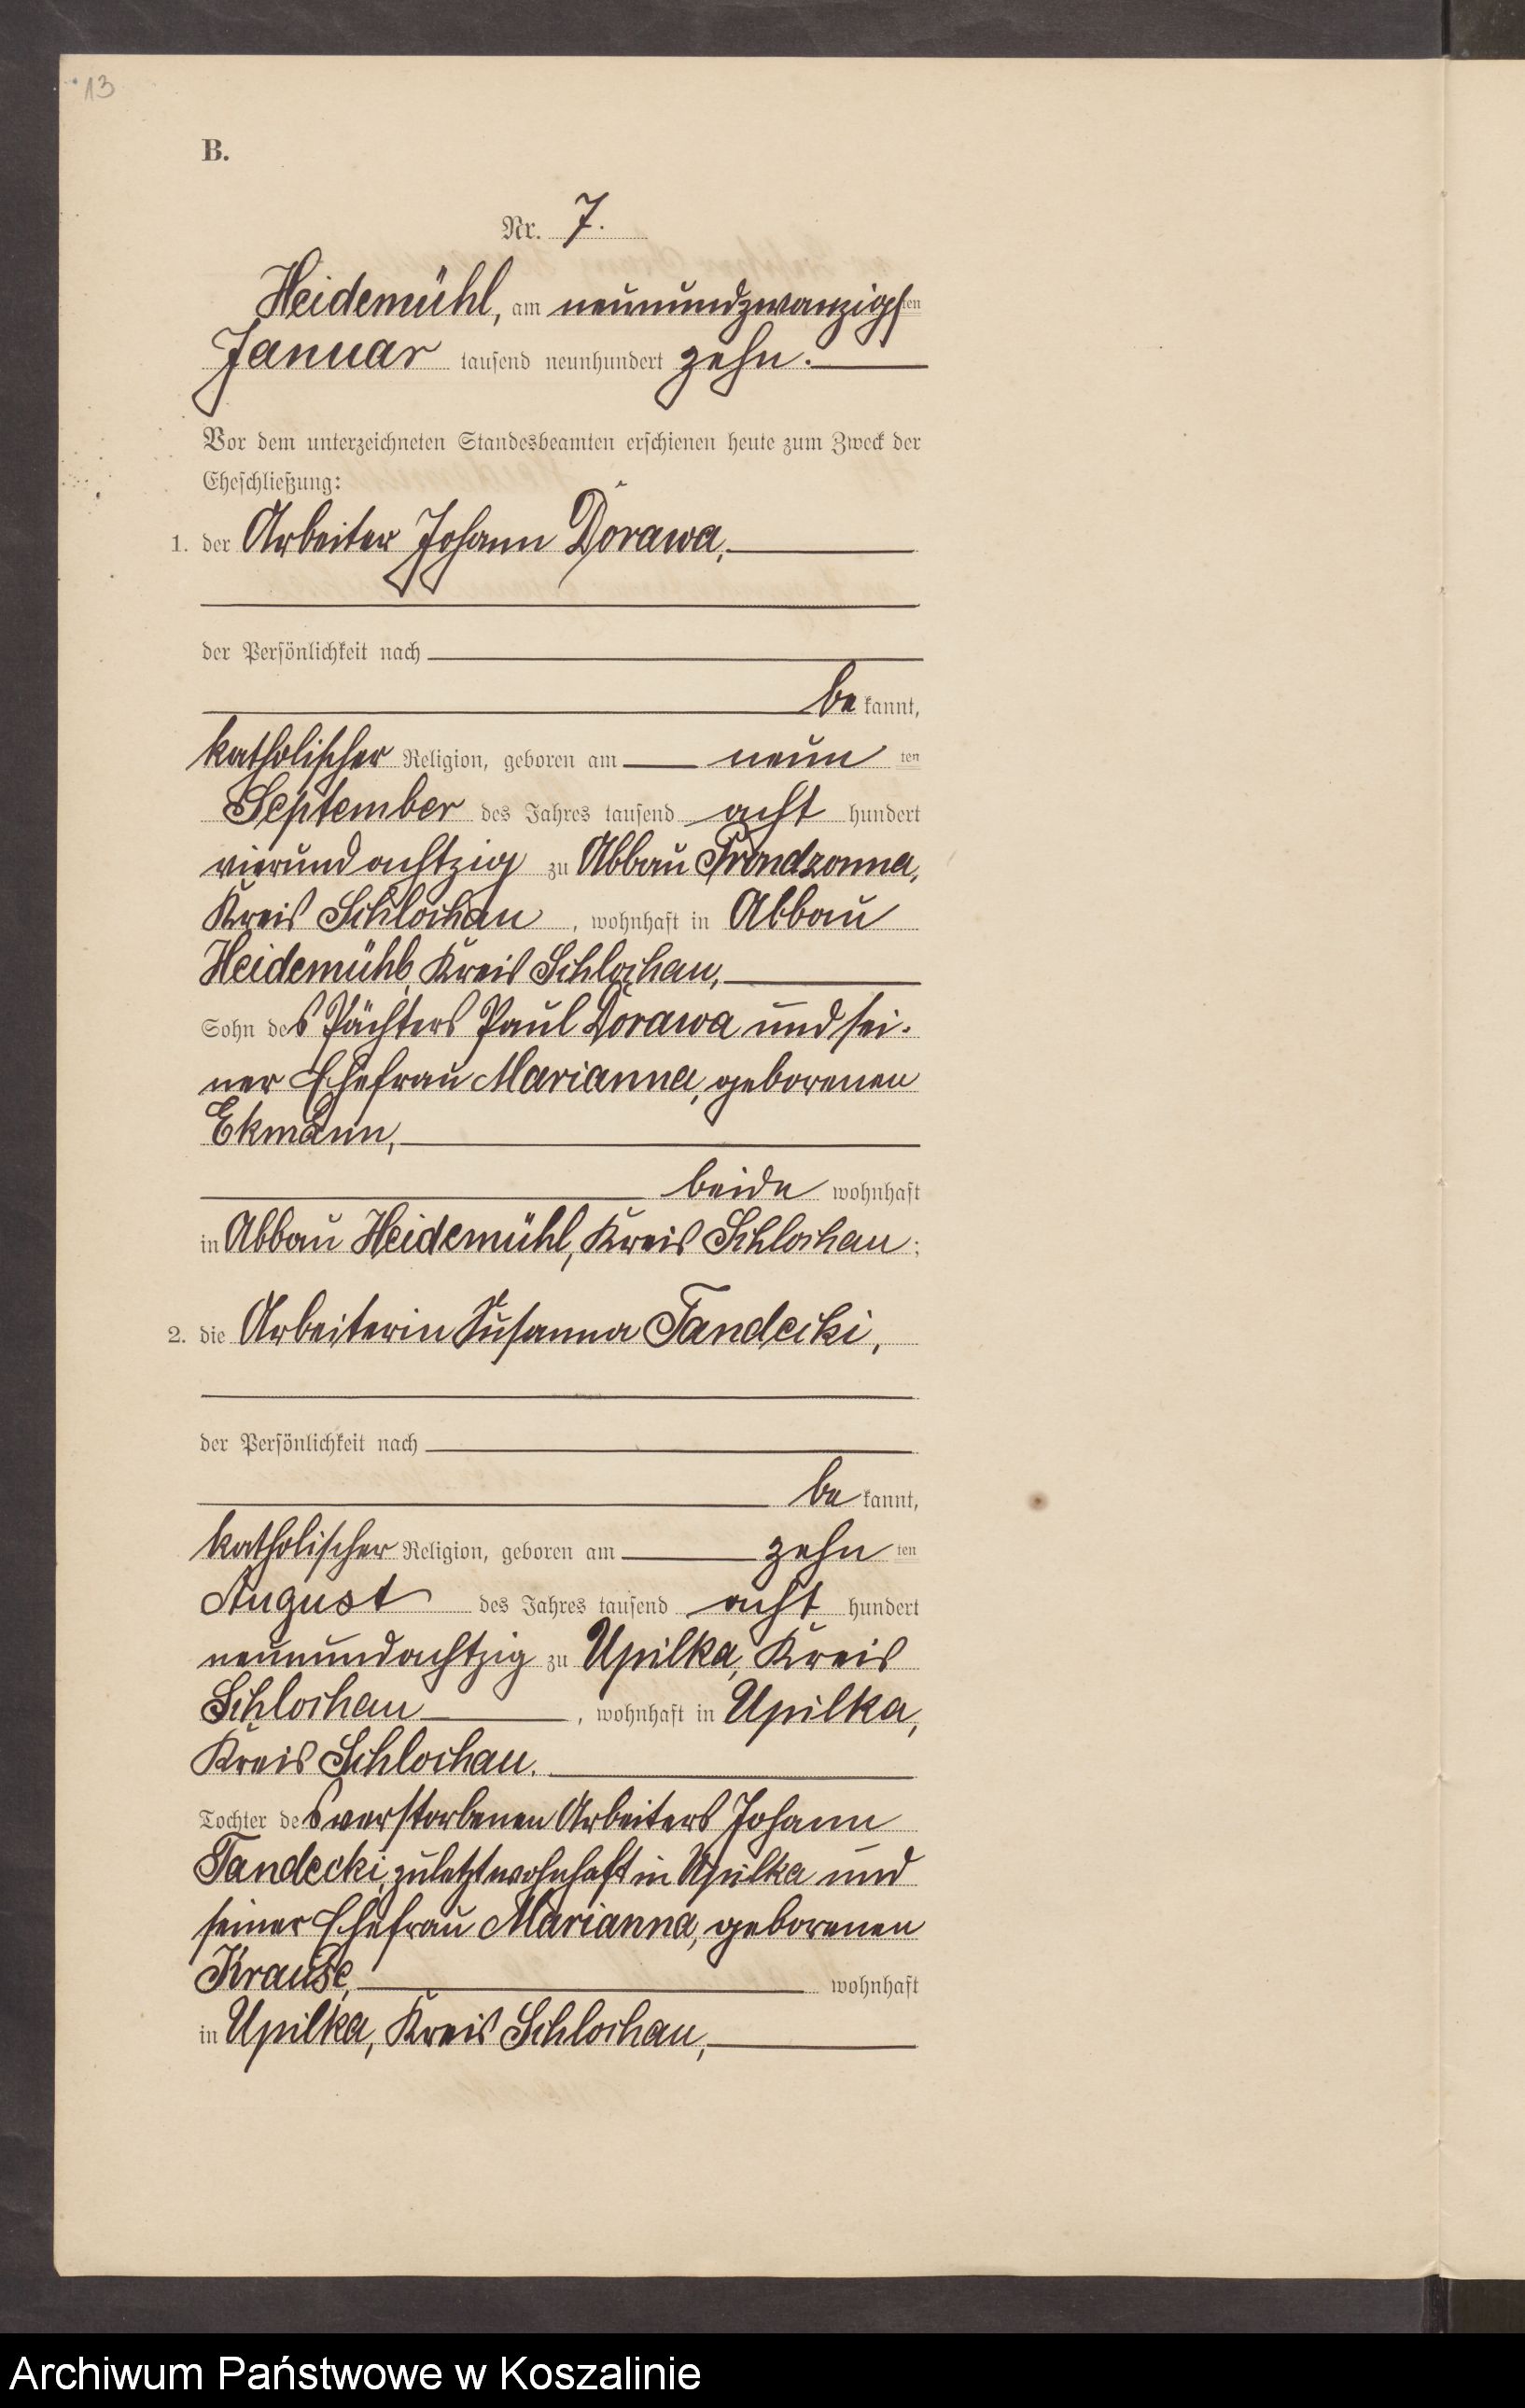 13
B.
Nr. 7.
Heidemühl, am neunundzwanzigsten
Januar tausend neunhundert zehn.
Vor dem unterzeichneten Standesbeamten erschienen heute zum Zweck der
Eheschließung:
1. der Arbeiter Johann Dorawa,
der Persönlichkeit nach
be kannt,
katholischer Religion, geboren am neun ten
September des Jahres tausend acht hundert
vierundachtzig zu Abbau Prondzonna,
Kreis Schlochau, wohnhaft in Abbau
Heidemühl, Kreis Schlochau,
Sohn des Pächters Paul Dorawa und sei-
ner Ehefrau Marianna, geborenen
Ekmann,
beide wohnhaft
in Abbau Heidemühl, Kreis Schlochau;
2. die Arbeiterin Susanna Tandecki,
der Persönlichkeit nach
be kannt,
katholischer Religion, geboren am zehn ten
August des Jahres tausend acht hundert
neunundachtzig zu Upilka, Kreis
Schlochau, wohnhaft in Upilka,
Kreis Schlochau.
Tochter des verstorbenen Arbeiters Johann
Tandecki, zuletzt wohnhaft in Upilka und
seiner Ehefrau Marianna, geborenen
Krause, wohnhaft
in Upilka, Kreis Schlochau,
Archiwum Państwowe w Koszalinie